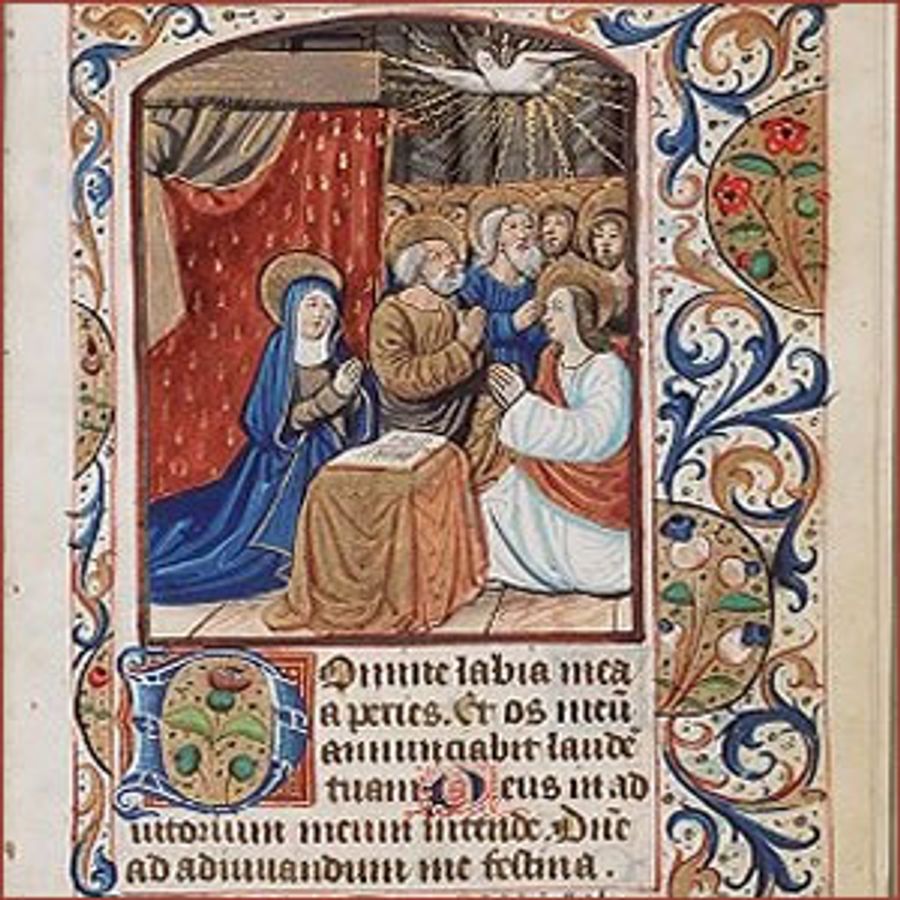 Domine labia mea
aperies. Et os meū
annunciabit laudē
tuam Deus in ad
iutorium meum intende. Dn̄e
ad adiuuandum me festina.